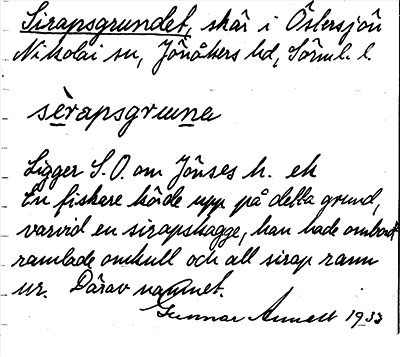 Sirapsgrundet, skär i Östersjön
Nikolai sn, Jönåkers hd, Sörml. l.
sèrapsgruna
Ligger S.O. om Jönses h. ek
En fiskare körde upp på detta grund,
varvid en sirapskagge, han hade ombord
ramlade omkull och all sirap rann
ur. Därav namnet.
Gunnar Annell 1933